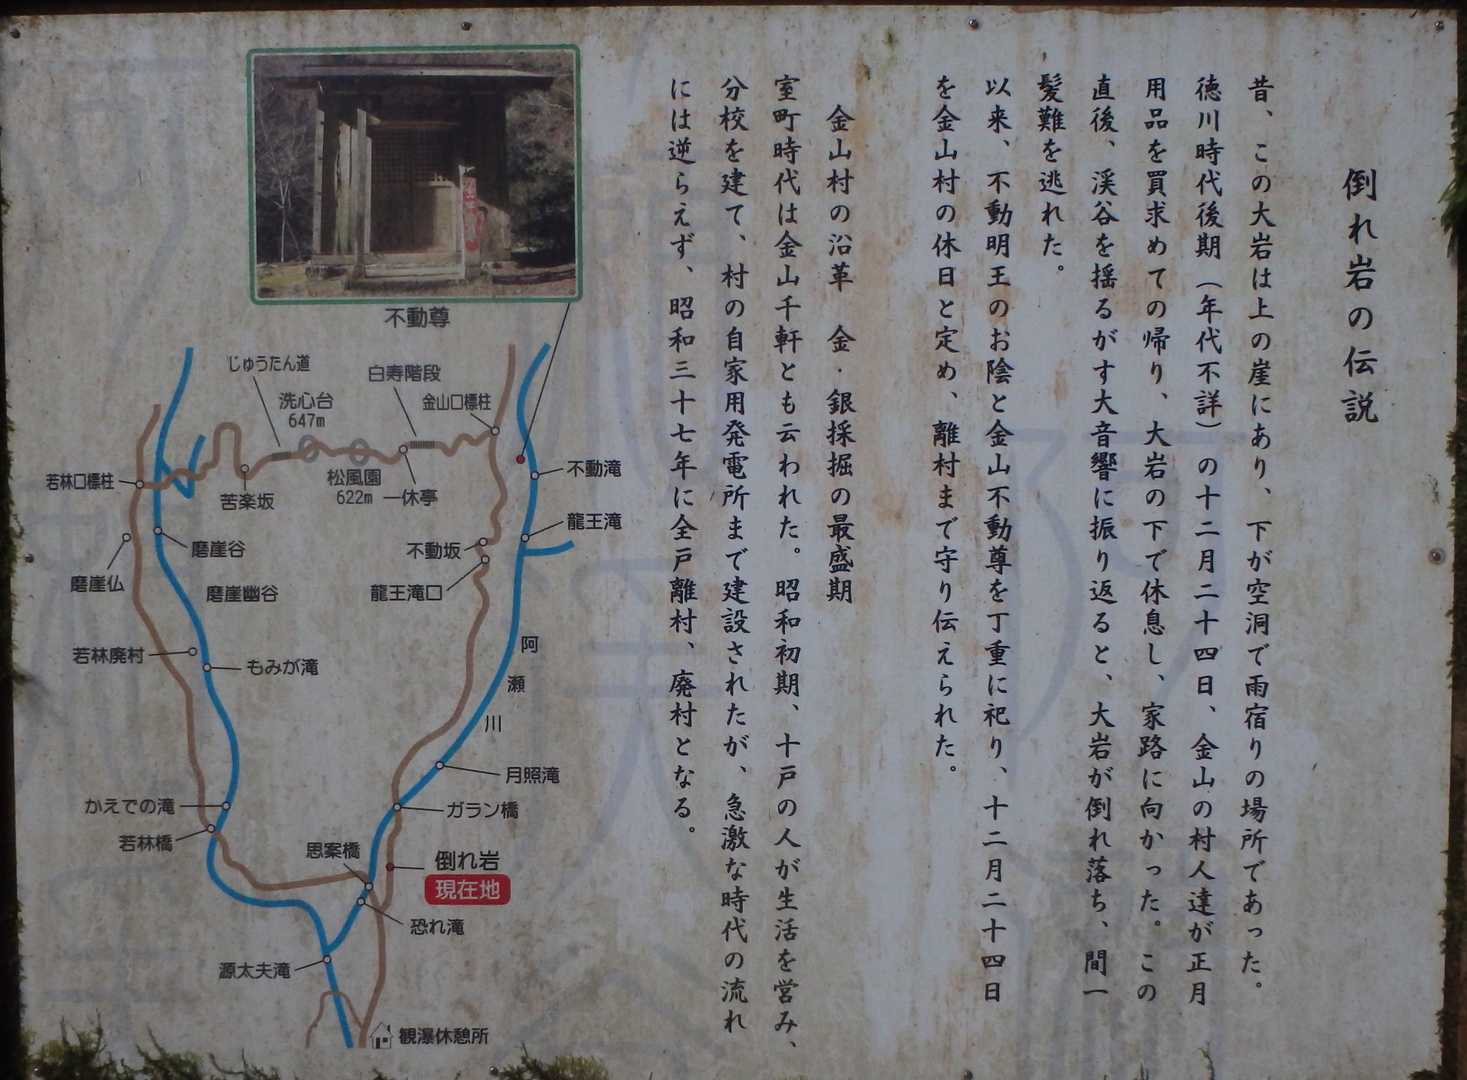 倒れ岩の伝説
昔、この大岩は上の崖にあり、下が空洞で雨宿りの場所であった。
徳川時代後期（年代不詳）の十二月二十四日、金山の村人達が正月
用品を買求めての帰り、大岩の下で休息し、家路に向かった。この
直後、渓谷を揺るがす大音響に振り返ると、大岩が倒れ落ち、間一
髪難を逃れた。
以来、不動明王のお陰と金山不動尊を丁重に祀り、十二月二十四日
を金山村の休日と定め、離村まで守り伝えられた。
金山村の沿革　金・銀採掘の最盛期
室町時代は金山千軒とも云われた。昭和初期、十戸の人が生活を営み、
分校を建て、村の自家用発電所まで建設されたが、急激な時代の流れ
には逆らえず、昭和三十七年に全戸離村、廃村となる。
不動尊
じゅうたん道
白寿階段
洗心台
647m
金山口標柱
若林口標柱
苦楽坂
松風園
622m
一休亭
不動滝
龍王滝
磨崖谷
不動坂
磨崖仏
磨崖幽谷
龍王滝口
若林廃村
もみが滝
阿瀬川
月照滝
かえでの滝
ガラン橋
若林橋
思案橋
倒れ岩
現在地
恐れ滝
源太夫滝
観瀑休憩所